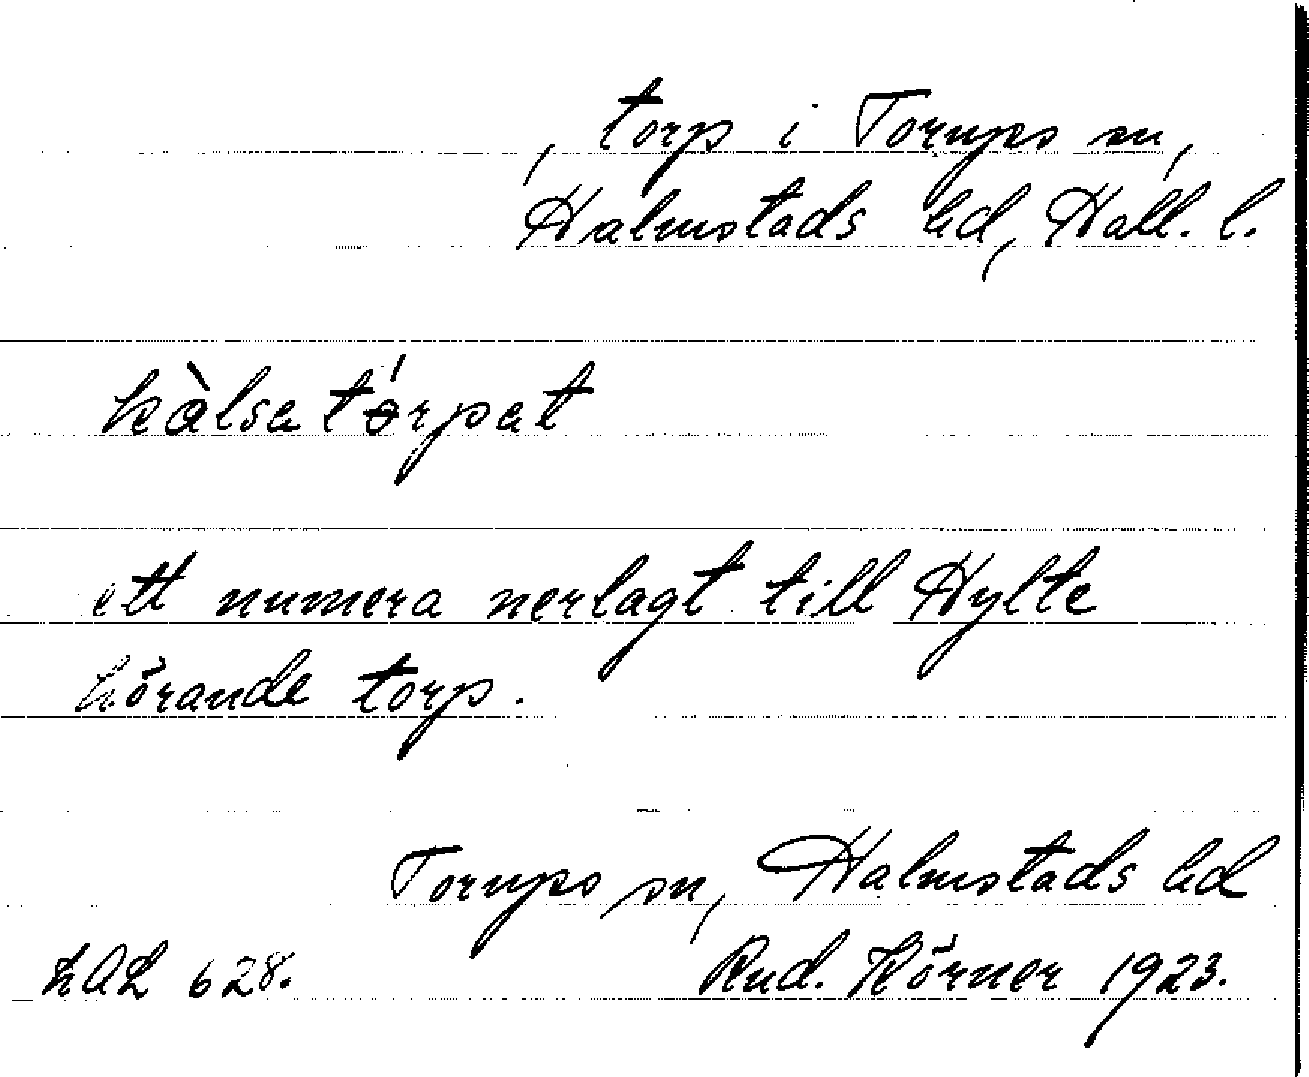 , torp i Torups sn,
Halmstads hd, Hall. l.
kàlsatórpat
ett numera nerlagt till Hylte
hörande torp.
Torups sn, Halmstads hd
LAL 628. Rud. Körner 1923.